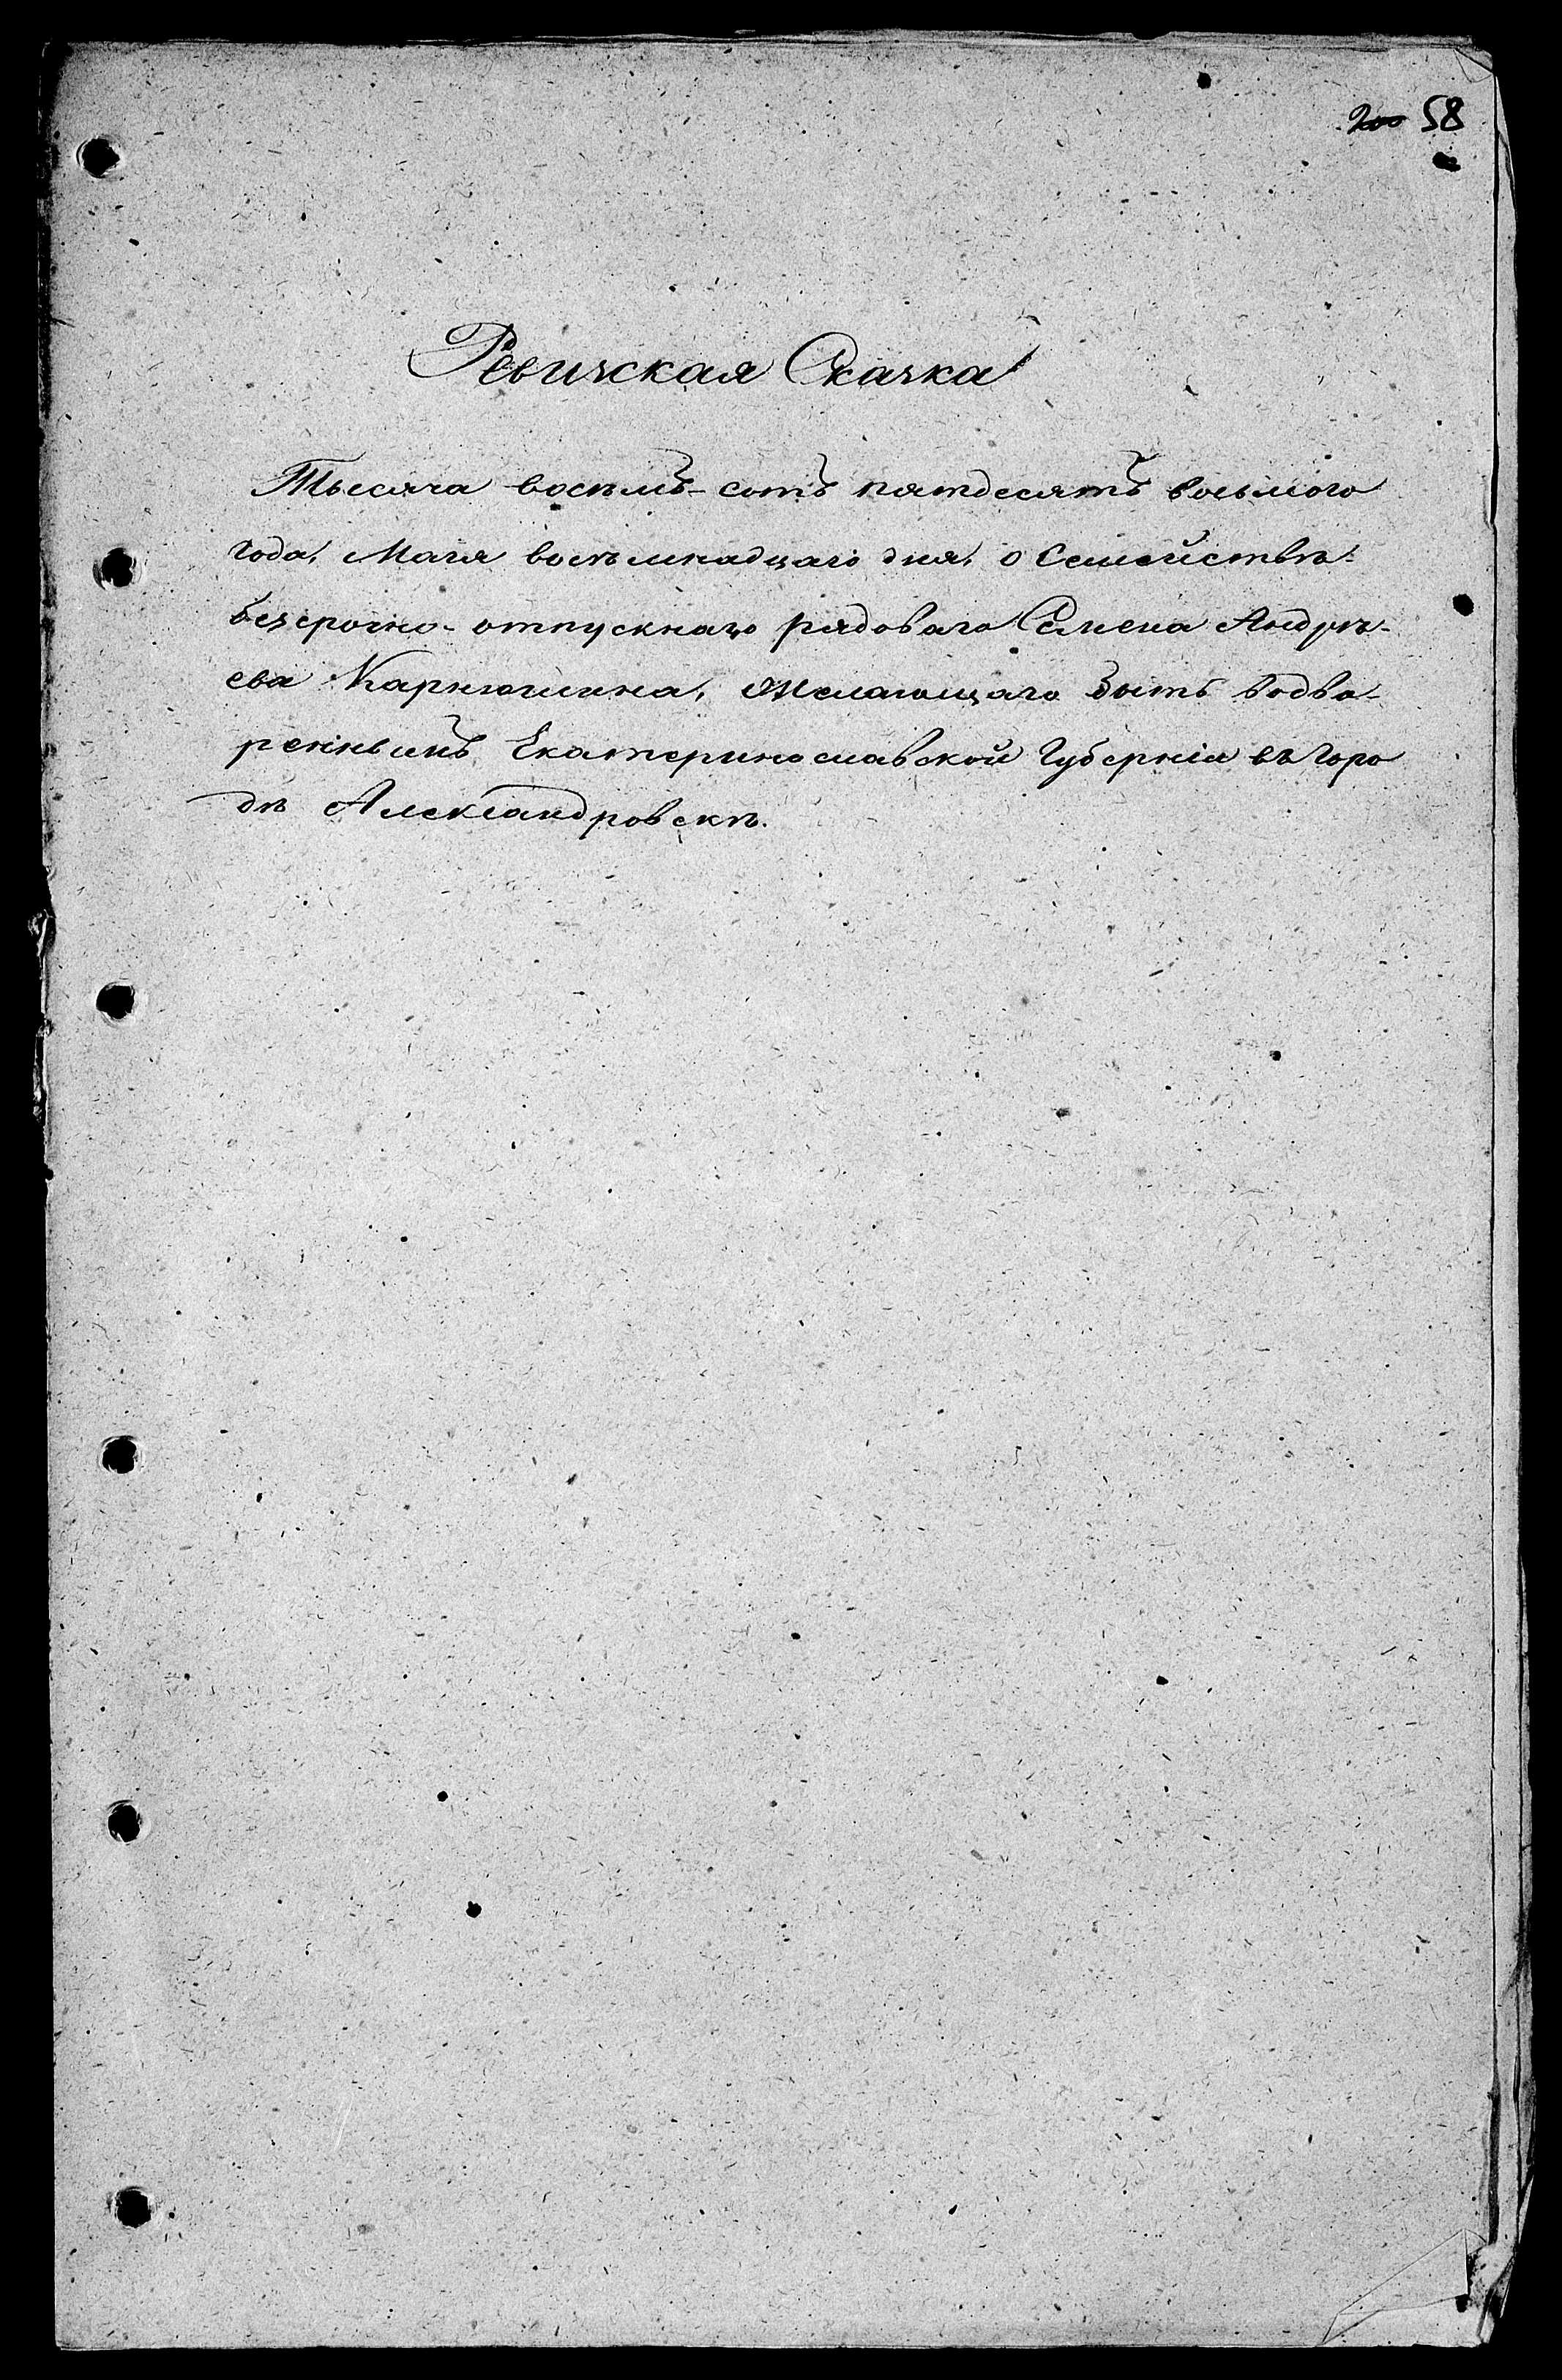 200 58
Ревизская Сказка
Тысяча восемъ-сотъ пятдесятъ восьмого
года, Маия восемнадцаго дня, о Семействѣ
безсрочно-отпускнаго рядоваго Семена Андрѣ-
ева Карнюшина, желающаго быть водво-
реннымъ Екатеринославской Губерніи въ горо
дѣ Александровскѣ.